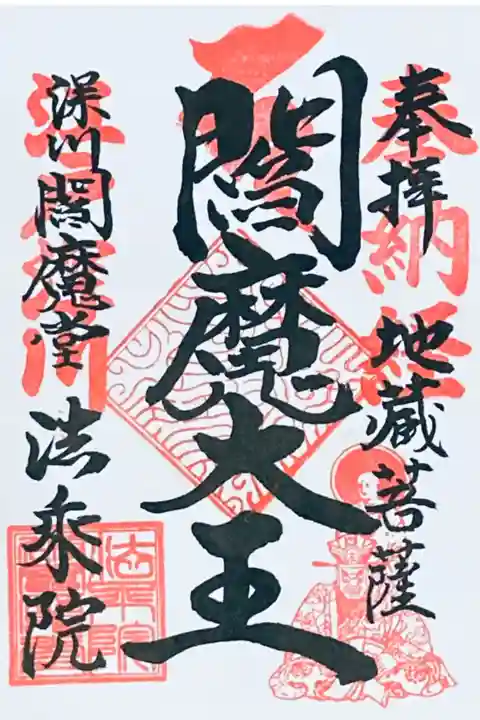 奉拝
地蔵菩薩
閻魔大王
深川閻魔堂
法乗院
奉納経
法乗院